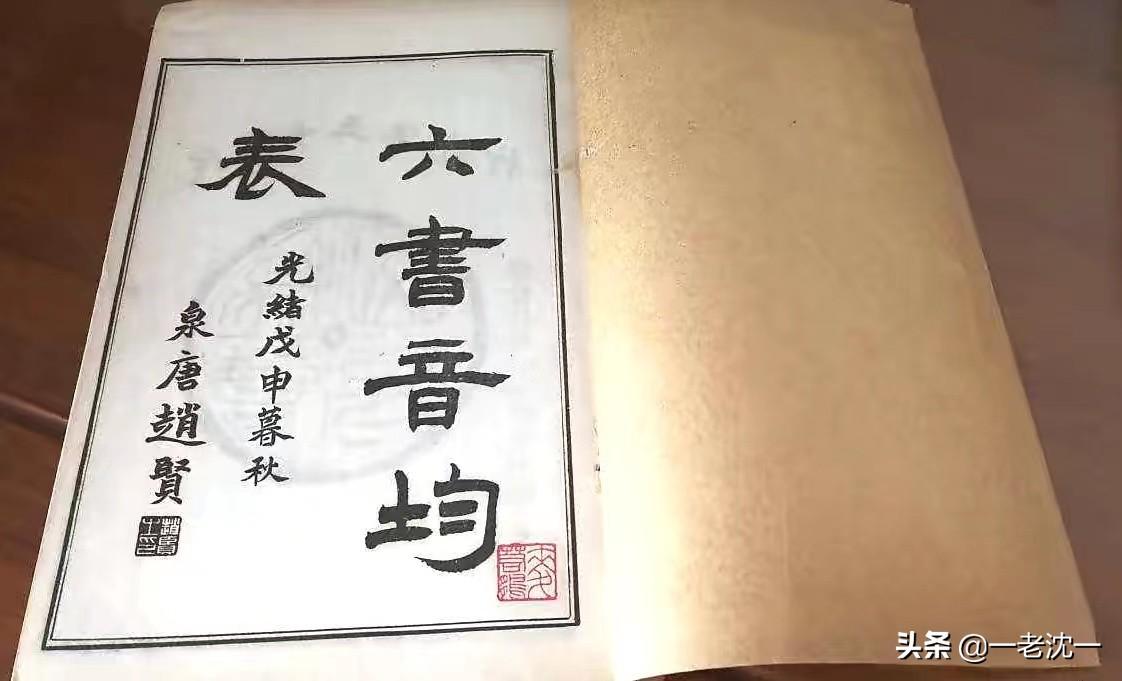 六書音均
表
光緒戊申暮秋
泉唐趙賢
頭条 @一老沈一